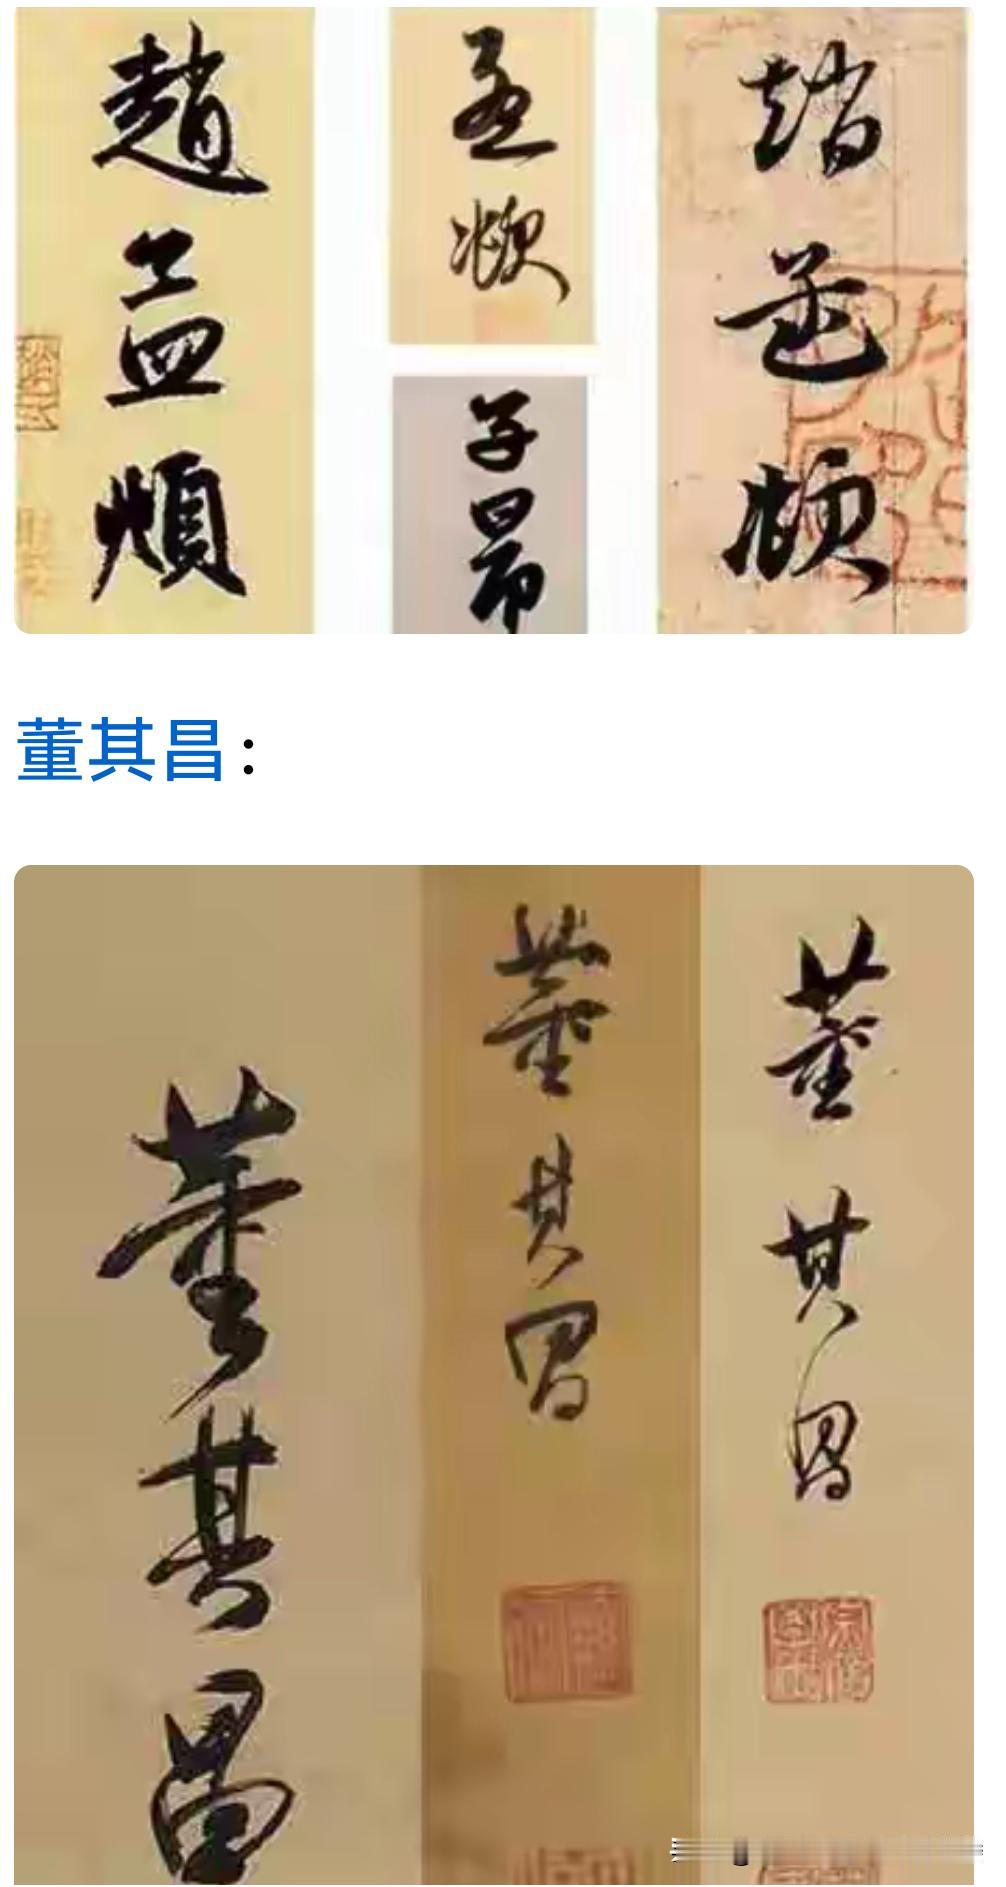 趙孟頫
孟頫
子昂
趙孟頫
董其昌：
董其昌
董其昌
董其昌